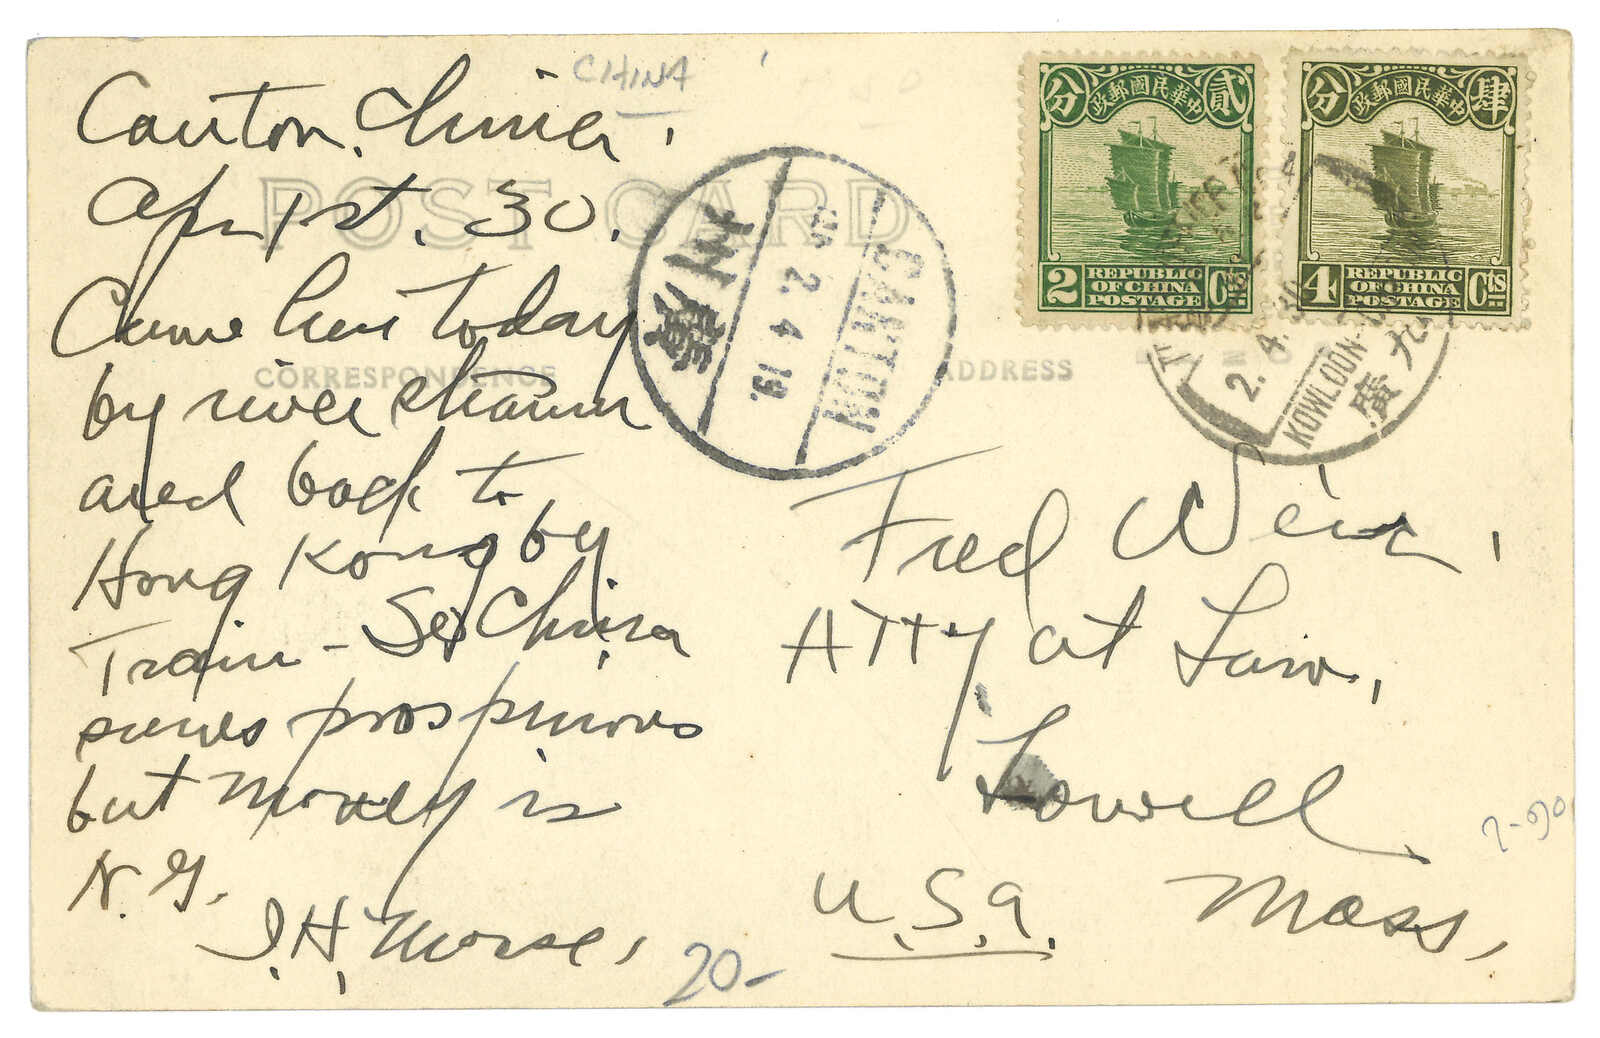 CHINA
Canton, China,
Apr 1st. 30.
Came here today
by river steamer
and back to
Hong Kong by
Train - So China
seems prosperous
but money is
N.G.
I.H. Morse,
20-
POST CARD
CORRESPONDENCE
ADDRESS
廣州
2.4.19.
CANTON
分 貳
中華民國郵政
2 REPUBLIC OF CHINA POSTAGE Cts
分 肆
中華民國郵政
4 REPUBLIC OF CHINA POSTAGE Cts
2.4.
KOWLOON-
廣九
Fred Weir,
ATTy at Law,
Lowell
Mass,
U.S.A.